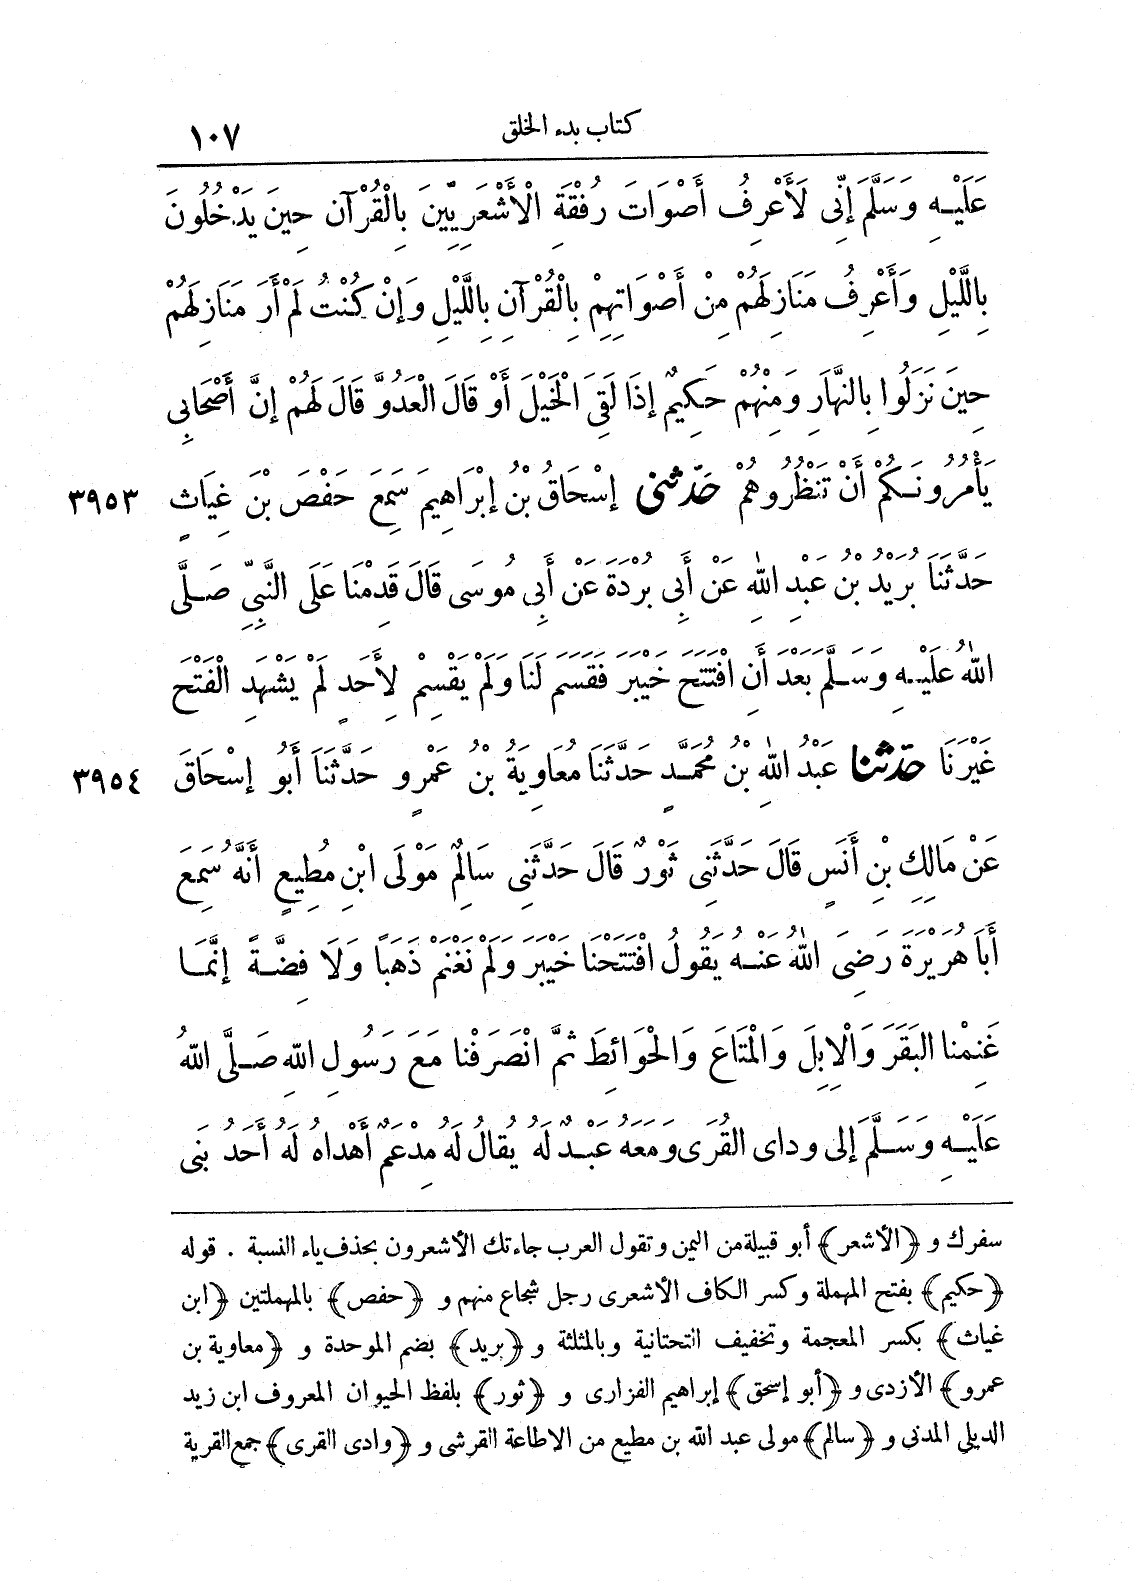 كتاب بدء الخلق ١٠٧
عَلَيْهِ وَسَلَّمَ إِنِّى لَأَعْرِفُ أَصْوَاتَ رُفْقَةِ الْأَشْعَرِيِّينَ بِالْقُرْآنِ حِينَ يَدْخُلُونَ
بِاللَّيْلِ وَأَعْرِفُ مَنَازِلَهُمْ مِنْ أَصْوَاتِهِمْ بِالْقُرْآنِ بِاللَّيْلِ وَإِنْ كُنْتُ لَمْ أَرَ مَنَازِلَهُمْ
حِينَ نَزَلُوا بِالنَّهَارِ وَمِنْهُمْ حَكِيمٌ إِذَا لَقِىَ الْخَيْلَ أَوْ قَالَ الْعَدُوَّ قَالَ لَهُمْ إِنَّ أَصْحَابِى
يَأْمُرُونَكُمْ أَنْ تَنْظُرُوهُمْ حَدَّثَنِى إِسْحَاقُ بْنُ إِبْرَاهِيمَ سَمِعَ حَفْصَ بْنَ غِيَاثٍ ٣٩٥٣
حَدَّثَنَا بُرَيْدُ بْنُ عَبْدِ اللهِ عَنْ أَبِى بُرْدَةَ عَنْ أَبِى مُوسَى قَالَ قَدِمْنَا عَلَى النَّبِيِّ صَلَّى
اللهُ عَلَيْهِ وَسَلَّمَ بَعْدَ أَنِ افْتَتَحَ خَيْبَرَ فَقَسَمَ لَنَا وَلَمْ يَقْسِمْ لِأَحَدٍ لَمْ يَشْهَدِ الْفَتْحَ
غَيْرَنَا حَدَّثَنَا عَبْدُ اللهِ بْنُ مُحَمَّدٍ حَدَّثَنَا مُعَاوِيَةُ بْنُ عَمْرٍو حَدَّثَنَا أَبُو إِسْحَاقَ ٣٩٥٤
عَنْ مَالِكِ بْنِ أَنَسٍ قَالَ حَدَّثَنِى ثَوْرٌ قَالَ حَدَّثَنِى سَالِمٌ مَوْلَى ابْنِ مُطِيعٍ أَنَّهُ سَمِعَ
أَبَا هُرَيْرَةَ رَضِىَ اللهُ عَنْهُ يَقُولُ افْتَتَحْنَا خَيْبَرَ وَلَمْ نَغْنَمْ ذَهَبًا وَلَا فِضَّةً إِنَّمَا
غَنِمْنَا البَقَرَ وَالْإِبِلَ وَالْمَتَاعَ وَالْحَوَائِطَ ثُمَّ انْصَرَفْنَا مَعَ رَسُولِ اللهِ صَلَّى اللهُ
عَلَيْهِ وَسَلَّمَ إِلَى وداى القُرَى وَمَعَهُ عَبْدٌ لَهُ يُقَالُ لَهُ مِدْعَمٌ أَهْدَاهُ لَهُ أَحَدُ بَنِى
سفرك و ﴿الأشعر﴾ أبو قبيلة من اليمن وتقول العرب جاءتك الأشعرون بحذف ياء النسبة . قوله
﴿حكيم﴾ بفتح المهملة وكسر الكاف الأشعرى رجل شجاع منهم و ﴿حفص﴾ بالمهملتين ﴿ابن
غياث﴾ بكسر المعجمة وتخفيف التحتانية وبالمثلثة و ﴿بريد﴾ بضم الموحدة و ﴿معاوية بن
عمرو﴾ الأزدى و ﴿أبو إسحق﴾ إبراهيم الفزارى و ﴿ثور﴾ بلفظ الحيوان المعروف ابن زيد
الديلي المدنى و ﴿سالم﴾ مولى عبد الله بن مطيع من الاطاعة القرشى و ﴿وادى القرى﴾ جمع القرية